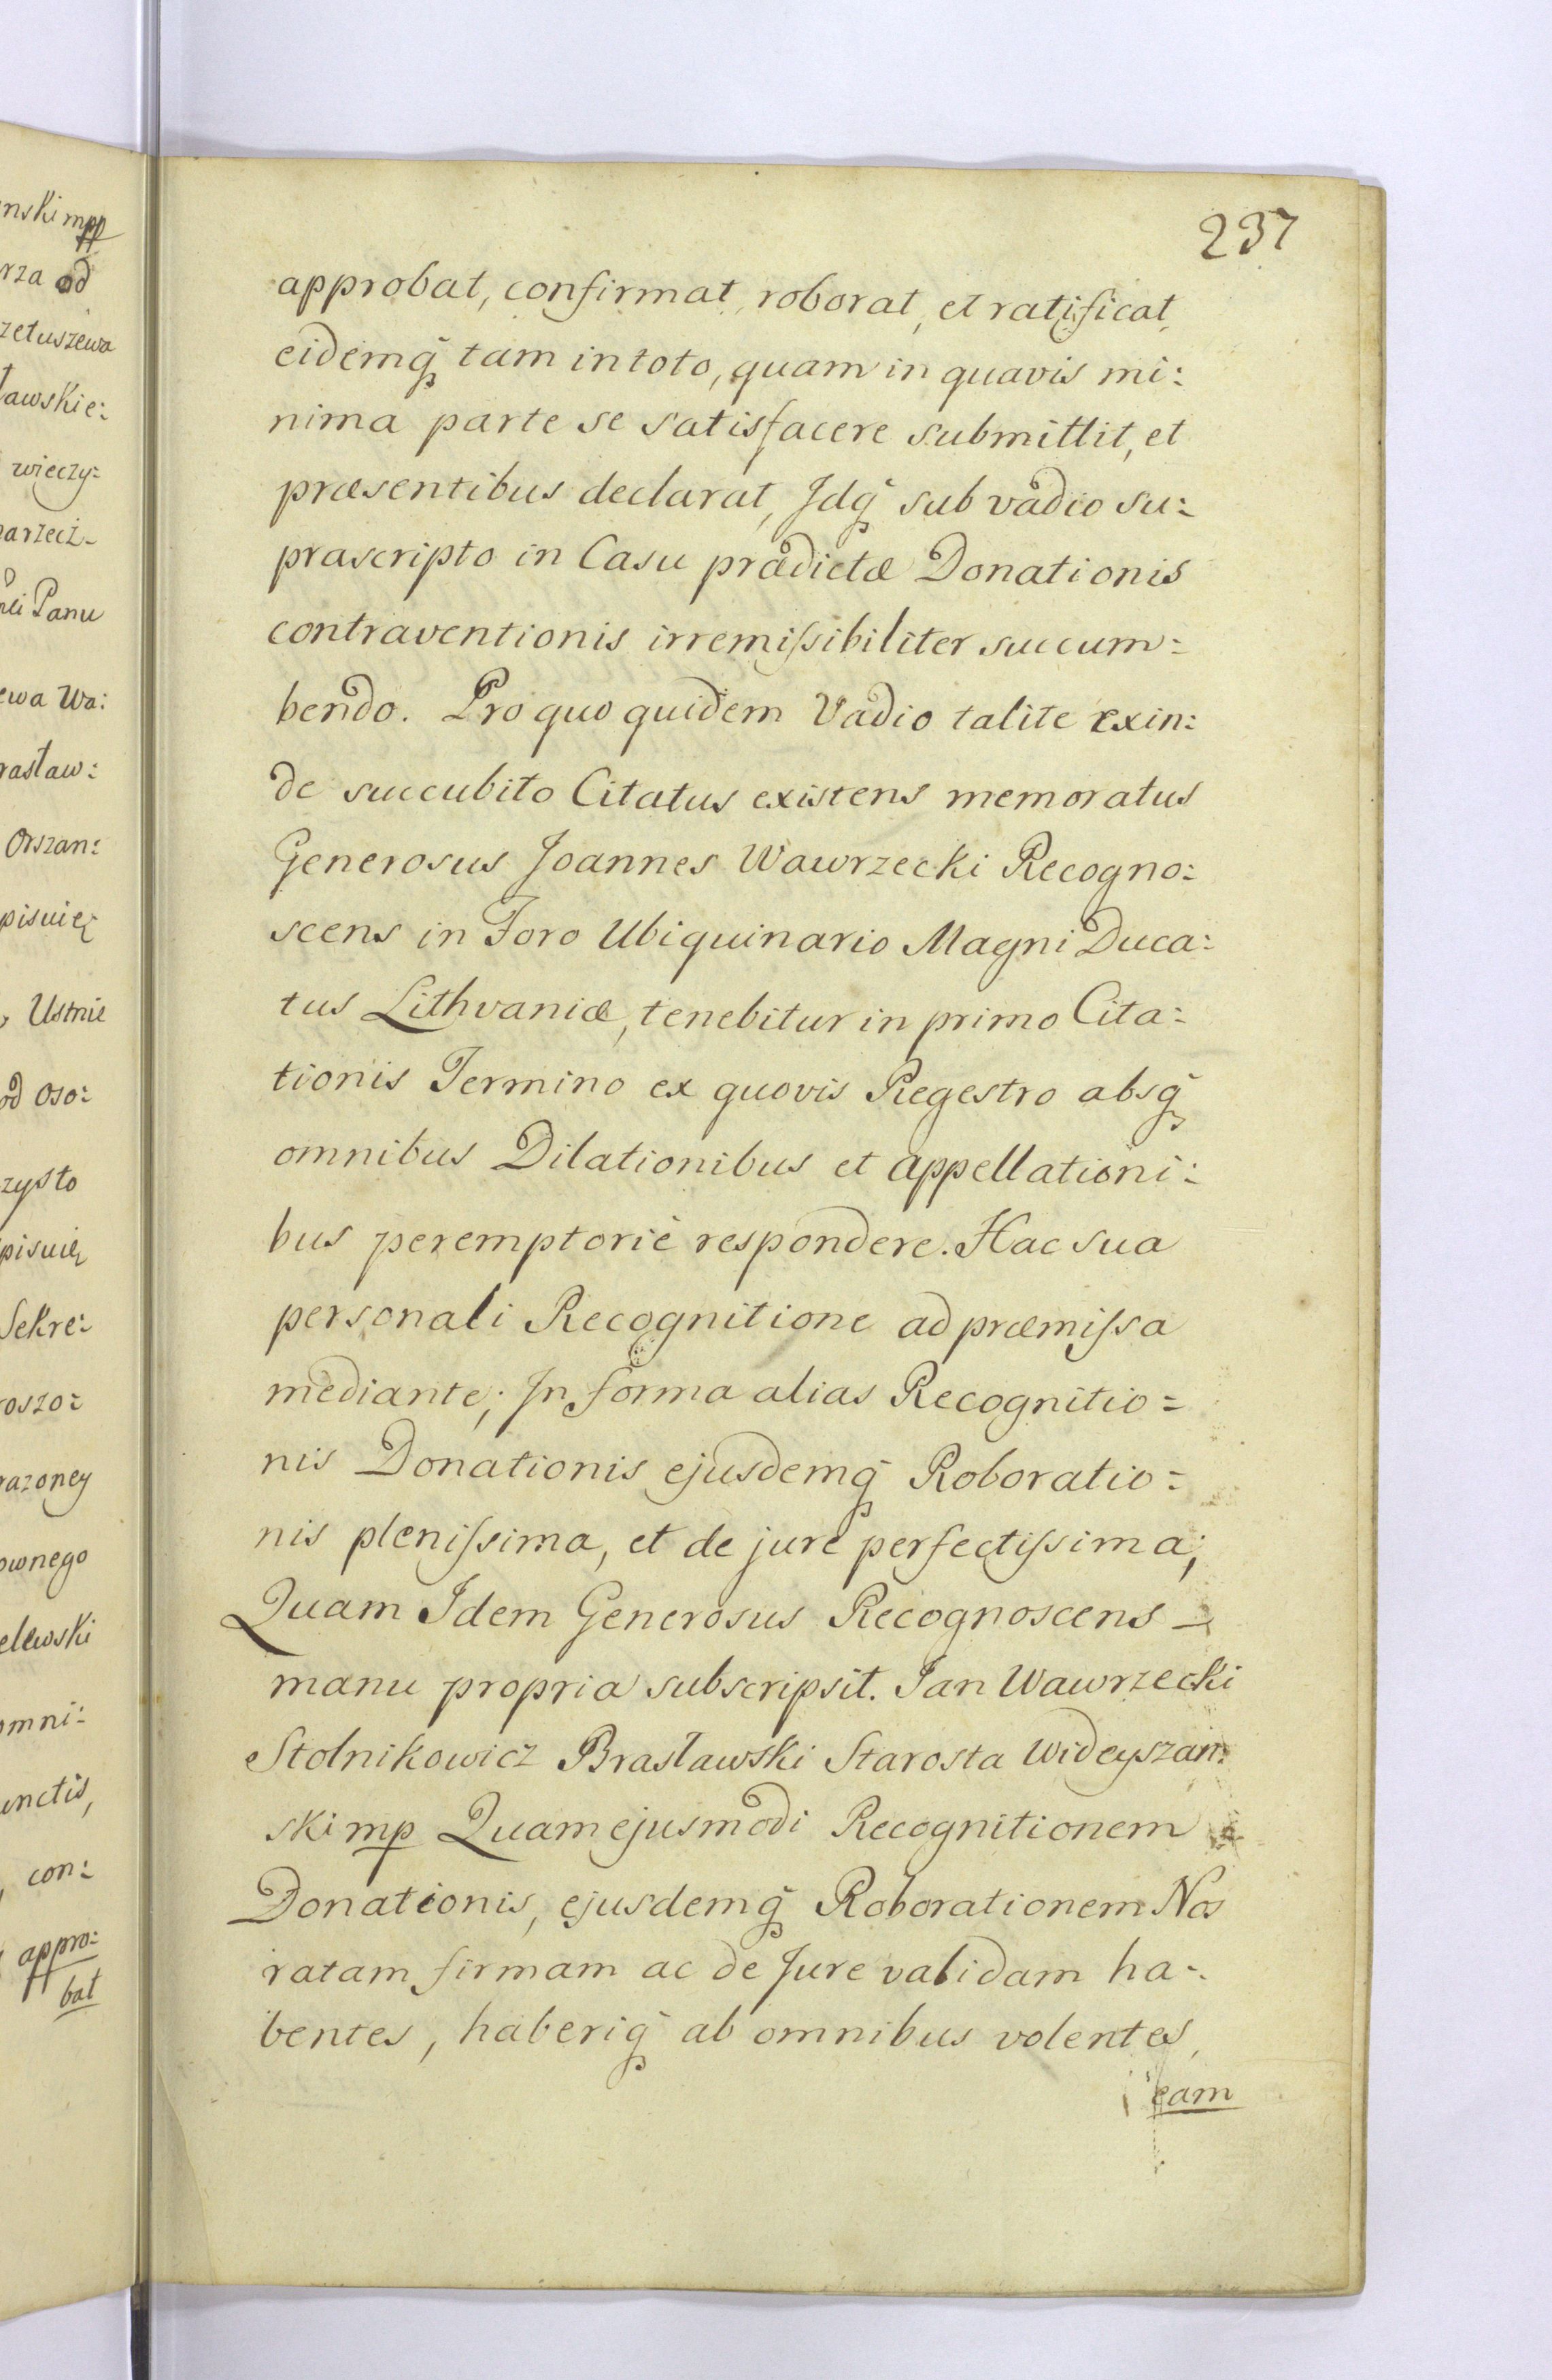 nski mpp
rza od
zetuszewa
ławskie:
wieczy:
arzecz-
Panu
ewa Wa:
rasław:
Orszan:
pisuię
Ustnie
od oso:
zysto
pisuię
Sekre:
roszo:
razoney
ownego
elewski
omni:
unctis,
con:
appro:
bat
237
approbat, confirmat, roborat, et ratificat,
eidemq̃ tam in toto, quam in quavis mi:
nima parte se satisfacere submittit, et
præsentibus declarat, Jdq̃ sub vadio su:
prascripto in Casu prædictæ Donationis
contraventionis irremiſsibiliter succum:
bendo. Pro quo quidem Vadio talite exin:
de succubito Citatus existens memoratus
Generosus Joannes Wawrzecki Recogno:
scens in Foro Ubiquinario Magni Duca:
tus Lithvaniæ, tenebitur in primo Cita:
tionis Termino ex quovis Regestro absq̃
omnibus Dilationibus et appellationi:
bus peremptorie respondere. Hac sua
personali Recognitione ad præmiſsa
mediante; Jn forma alias Recognitio=
nis Donationis ejusdemq̃ Roboratio=
nis pleniſsima, et de jure perfectiſsima;
Quam Idem Generosus Recognoscens -
manu propria subscripsit. Jan Wawrzecki
Stolnikowicz Brasławski Starosta Wideyszan:
ski mp Quam ejusmodi Recognitionem
Donationis, ejusdemq̃ Roborationem Nos
ratam firmam ac de Jure validam ha-:
bentes, haberiq̃ ab omnibus volentes,
eam